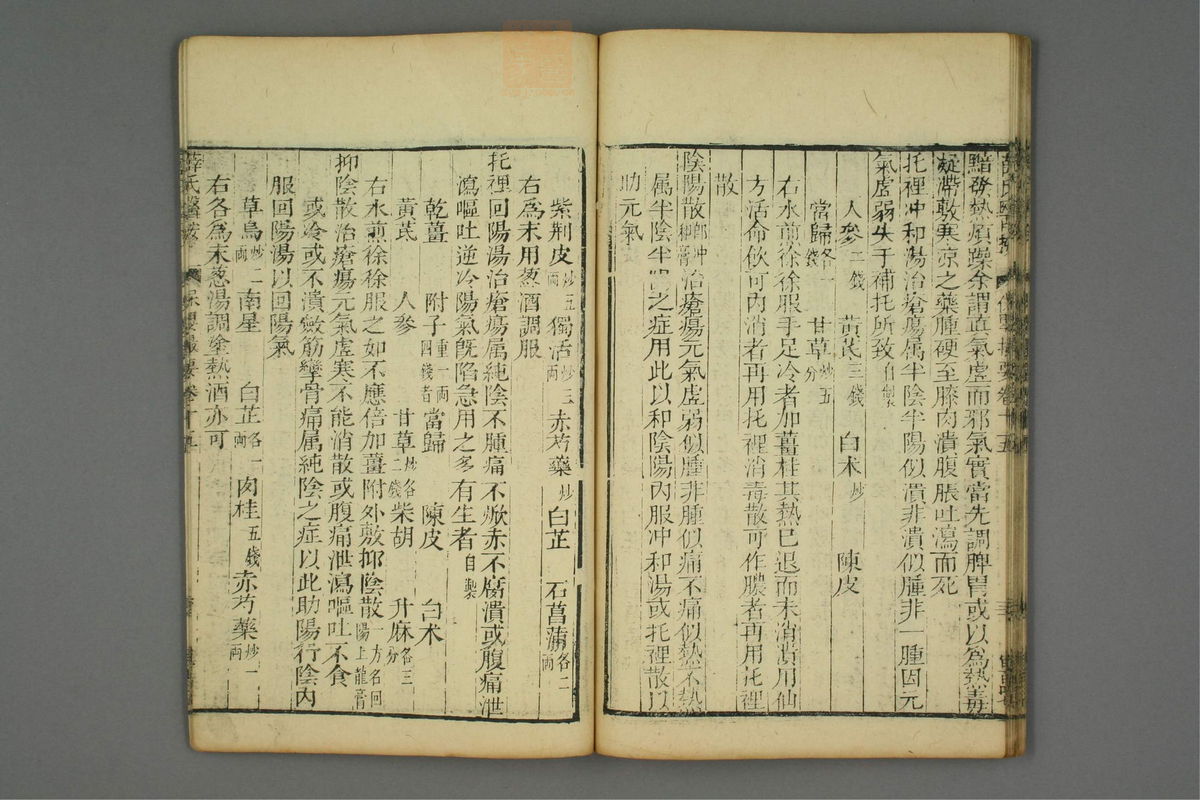 黯發熱煩躁余謂直氣虛而邪氣實當先調脾胃或以爲熱毒
凝滯敷寒凉之藥腫硬至膝肉潰腹脹吐瀉而死
托裡冲和湯治瘡瘍属半陰半陽似潰非潰似腫非一腫因元
氣虛弱失于補托所致自制
人參二錢 黃芪三錢 白术炒 陳皮
當歸各一錢 甘草炒五分
右水煎徐徐服手足冷者加薑桂其熱已退而未消潰用仙
方活命飲可內消者再用托裡消毒散可作膿者再用托裡
散
陰陽散即冲和膏治瘡瘍元氣虛弱似腫非腫似痛不痛似熱不熱
属半陰半之症用此以和陰陽內服冲和湯或托裡散以
助元氣
紫荆皮炒五兩 獨活炒三兩 赤芍藥炒 白芷 石菖蒲各二兩
右爲末用葱酒調服
托裡回陽湯治瘡瘍属純陰不腫痛不焮赤不腐潰或腹痛泄
瀉嘔吐逆冷陽氣旣陷急用之多有生者自製
乾薑 附子重一兩四錢者 當歸 陳皮 白术
黃芪 人參 甘草炒各二錢 柴胡 升麻各三分
右水煎徐徐服之如不應倍加薑附外敷抑陰散
抑陰散一方名回陽玉龍膏治瘡瘍元氣虛寒不能消散或腹痛泄瀉嘔吐不食
或冷或不潰斂筋攣骨痛属純陰之症以此助陽行陰內
服回陽湯以回陽氣
草烏炒二兩 南星 白芷各一兩 肉桂五錢 赤芍藥炒一兩
右各爲末葱湯調塗熱酒亦可
薛氏醫按 保嬰撮要卷十五